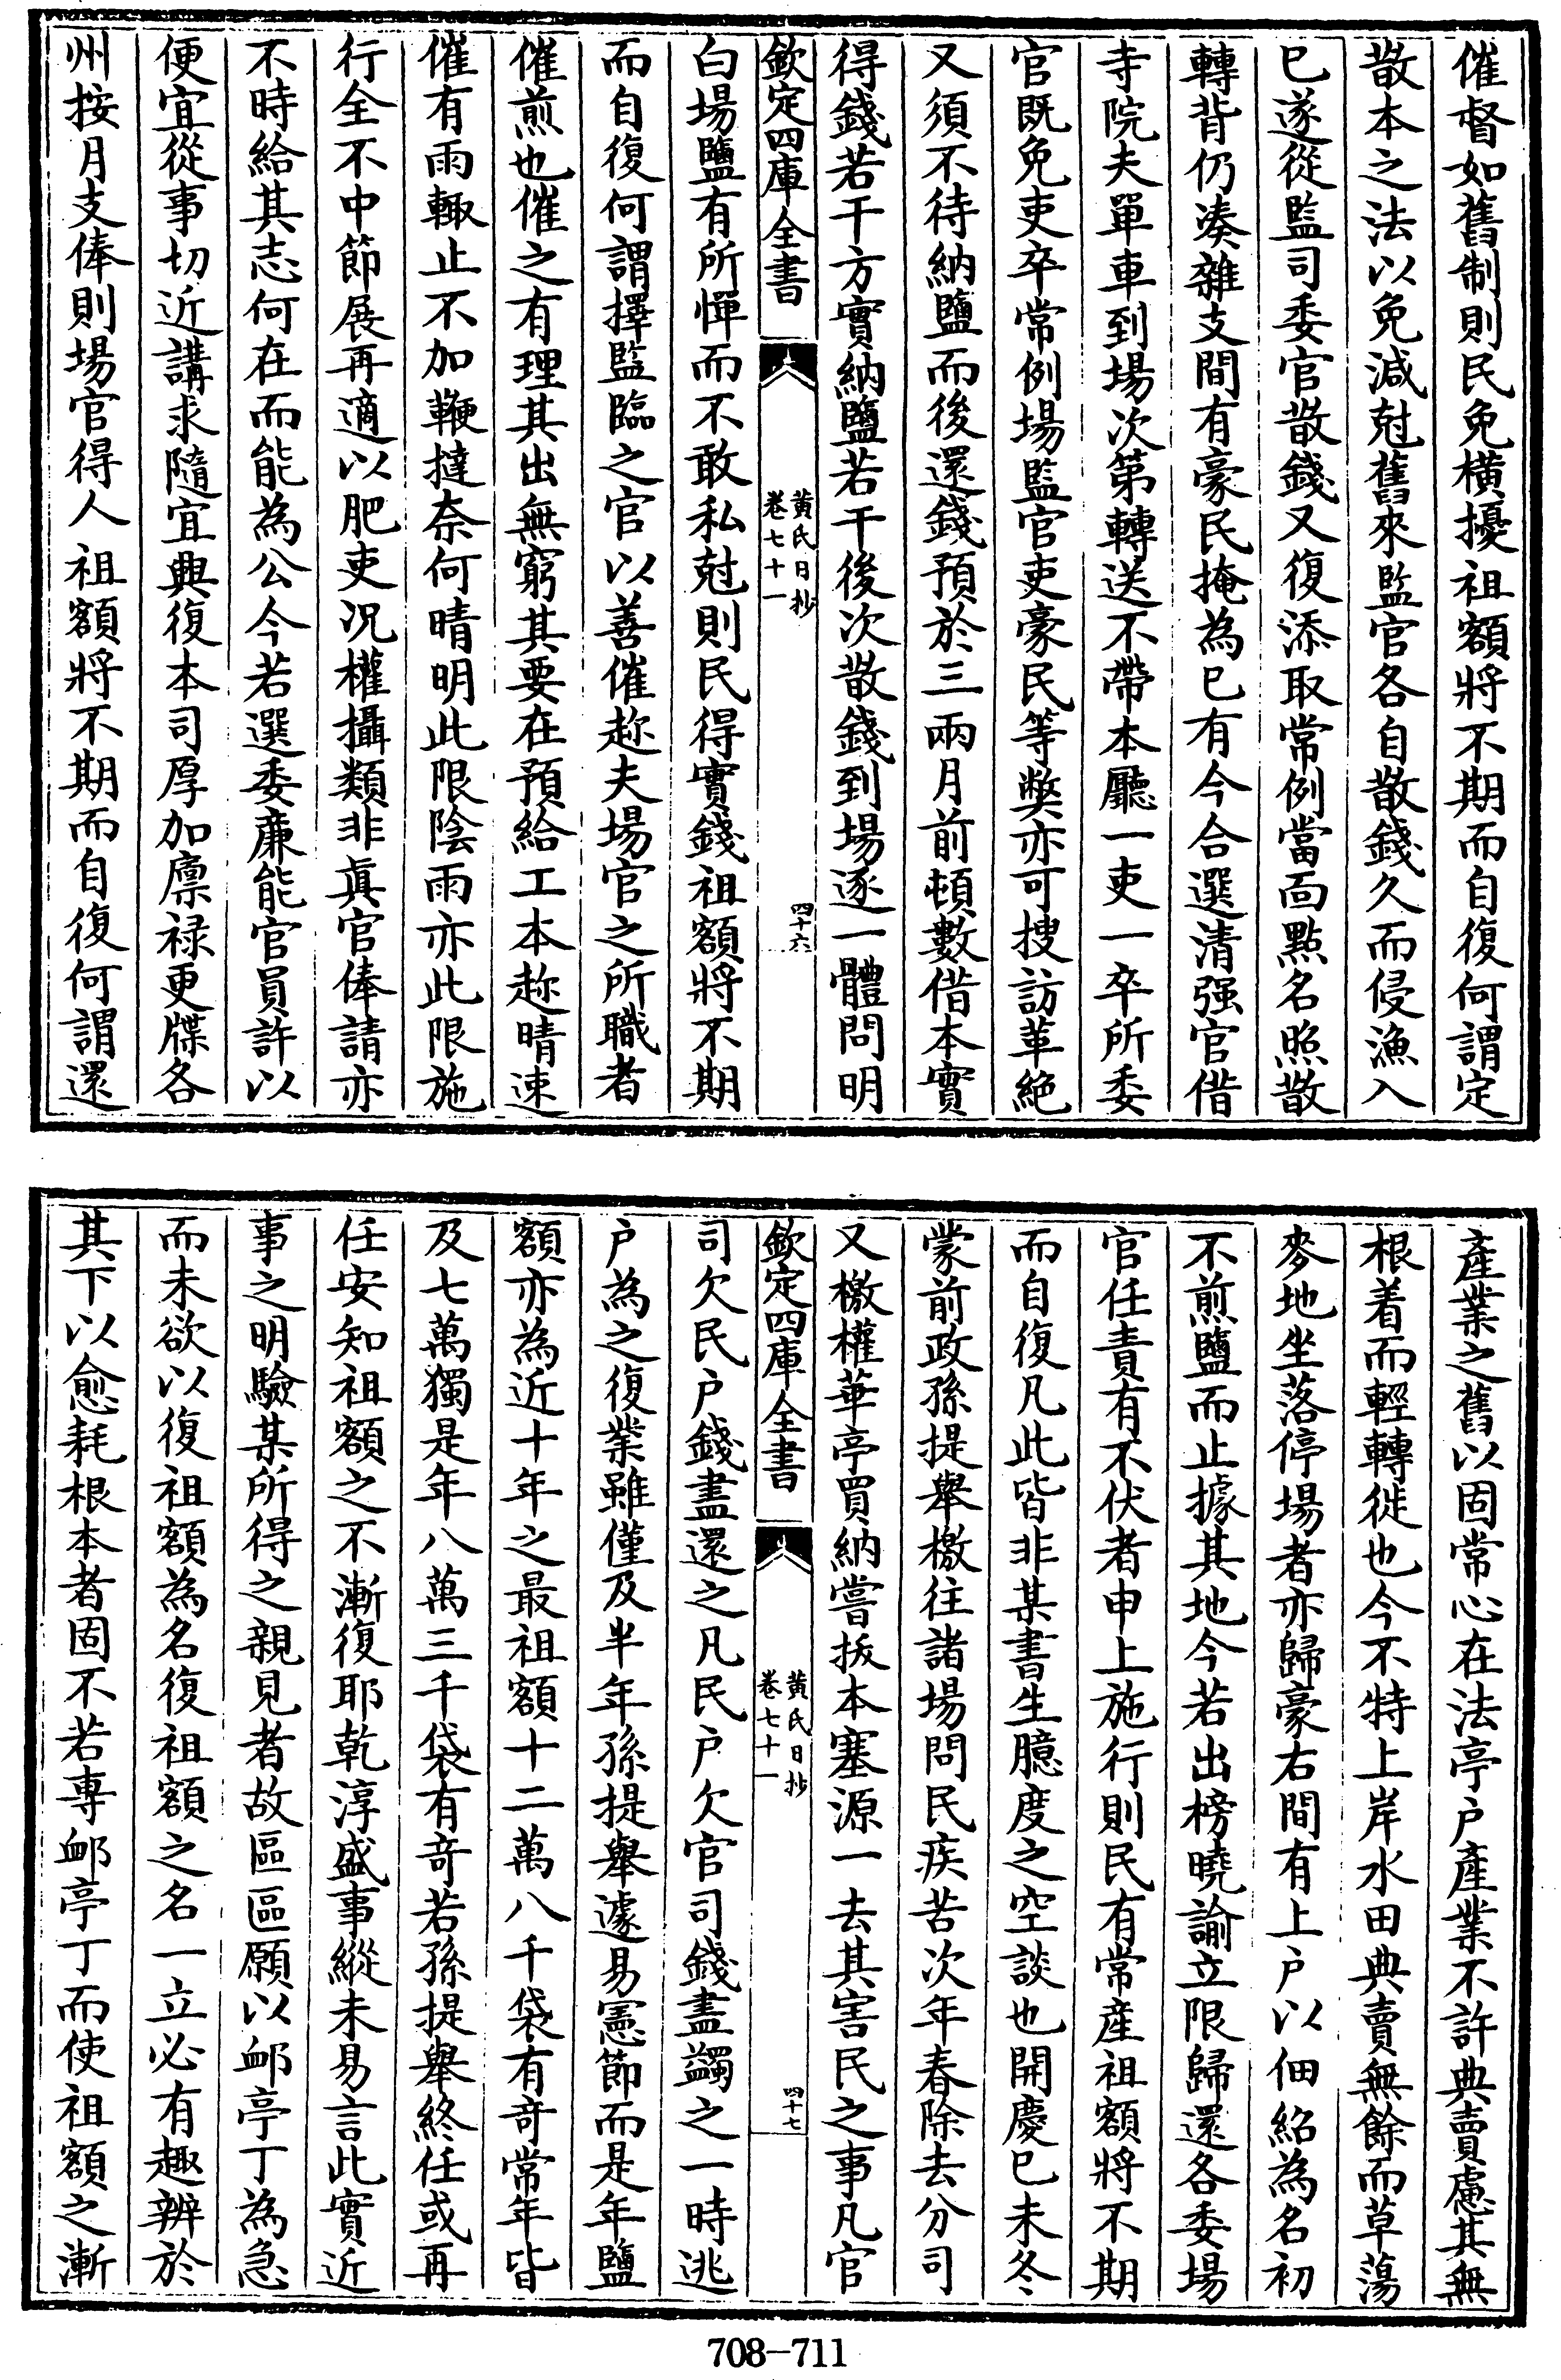 催督如舊制則民免橫擾祖額將不期而自復何謂定
散本之法以免減尅舊來監官各自散錢久而侵漁入
已遂從監司委官散錢又復添取常例當面點名照散
轉背仍湊雜支間有豪民掩為已有今合選清强官借
寺院夫單車到場次第轉送不帶本廳一吏一卒所委
官既免吏卒常例場監官吏豪民等弊亦可搜訪革絕
又須不待納鹽而後還錢預於三兩月前頓數借本實
得錢若干方實納鹽若干後次散錢到場逐一體問明
欽定四庫全書
黃氏日抄
卷七十一
四十六
白場鹽有所憚而不敢私尅則民得實錢祖額將不期
而自復何謂擇監臨之官以善催趂夫場官之所職者
催煎也催之有理其出無窮其要在預給工本趂晴速
催有雨輙止不加鞭撻奈何晴明此限隂雨亦此限施
行全不中節展再適以肥吏况權攝類非真官俸請亦
不時給其志何在而能為公今若選委亷能官員許以
便宜從事切近講求隨宜典復本司厚加廪禄更牒各
州按月支俸則場官得人祖額將不期而自復何謂還
產業之舊以固常心在法亭户產業不許典賣慮其無
根着而輕轉徙也今不特上岸水田典賣無餘而草蕩
麥地坐落停場者亦歸豪右間有上户以佃紹為名初
不煎鹽而止據其地今若出榜曉諭立限歸還各委場
官任責有不伏者申上施行則民有常産祖額將不期
而自復凡此皆非某書生臆度之空談也開慶已未冬
蒙前政孫提舉檄往諸場問民疾苦次年春除去分司
又檄權華亭買納嘗拔本塞源一去其害民之事凡官
欽定四庫全書
黃氏日抄
卷七十一
四十七
司欠民户錢盡還之凡民户欠官司錢盡蠲之一時逃
户為之復業雖僅及半年孫提舉遽易憲節而是年鹽
額亦為近十年之最祖額十二萬八千袋有竒常年皆
及七萬獨是年八萬三千袋有竒若孫提舉終任或再
任安知祖額之不漸復耶乾淳盛事縱未易言此實近
事之明驗某所得之親見者故區區願以䘏亭丁為急
而未欲以復祖額為名復祖額之名一立必有趣辨於
其下以愈耗根本者固不若専䘏亭丁而使祖額之漸
708-711